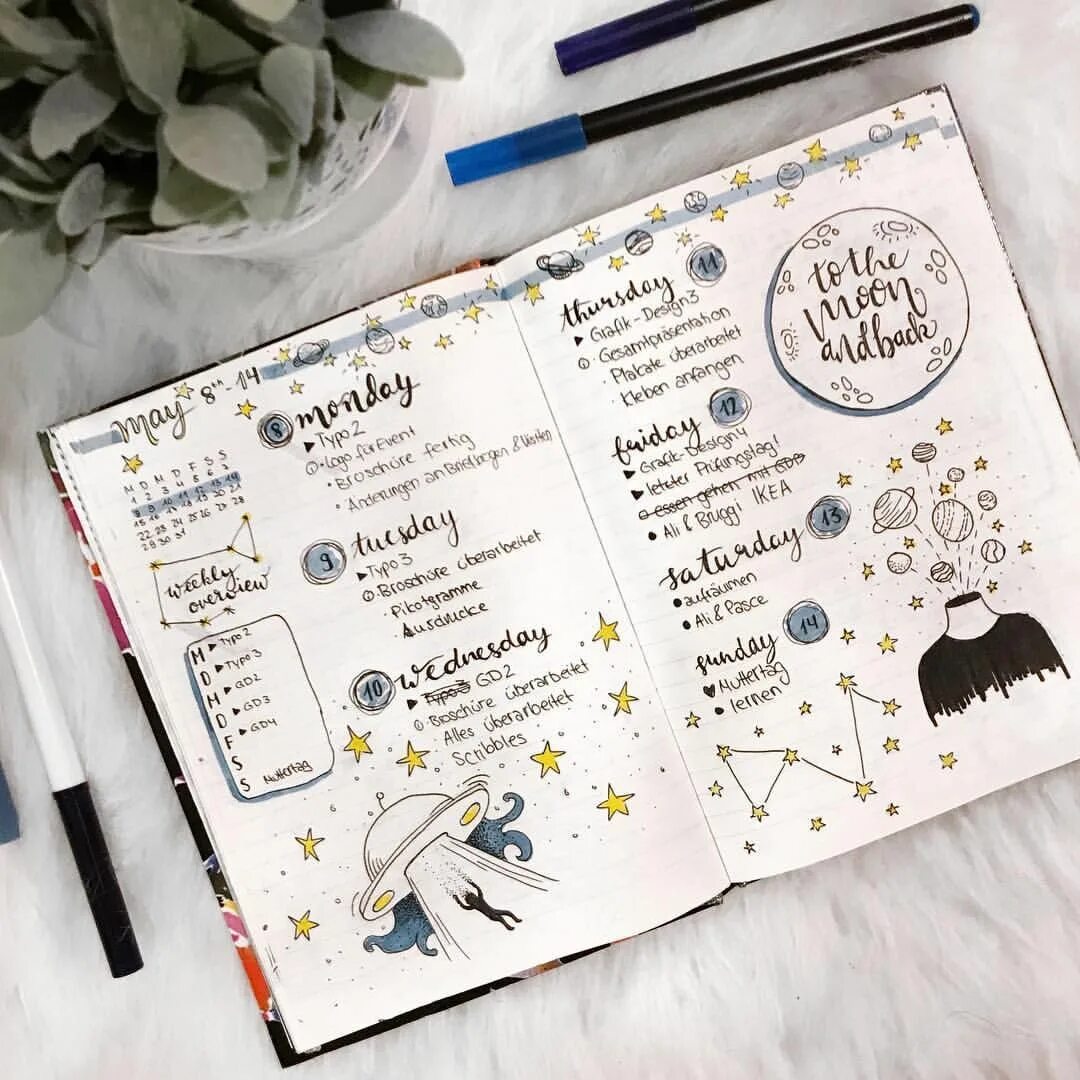 may 8th - 14
M D M D F S S
1 2 3 4 5 6 7
8 9 10 11 12 13 14
15 16 17 18 19 20 21
22 23 24 25 26 27 28
29 30 31
weekly
overview
M ▶Typo 2
D ▶Typo 3
M ▶GD2
D ▶GD3
F ▶GD4
S
S Muttertag
8 monday
▶Typo 2
• Logo für Event
• Broschüre fertig
• Änderungen an Briefbogen &
9 tuesday
▶Typo 3
Broschüre überarbeitet
Piktogramme
Ausdrucke
10 wednesday
▶ Typo 3 GD2
Broschüre überarbeitet
Alles überarbeitet
Scribbles
thursday 11
▶ Grafik-Design 3
Gesamtpräsentation
• Plakate überarbeitet
• Kleben anfangen
friday 12
▶ Grafik-Design 4
▶ letzter Prüfungstag!
essen gehen mit GDB
• Ali & Bruggi IKEA
saturday 13
• aufräumen
• Ali & Pasce
sunday 14
♥ Muttertag
• lernen
to the
moon
and back